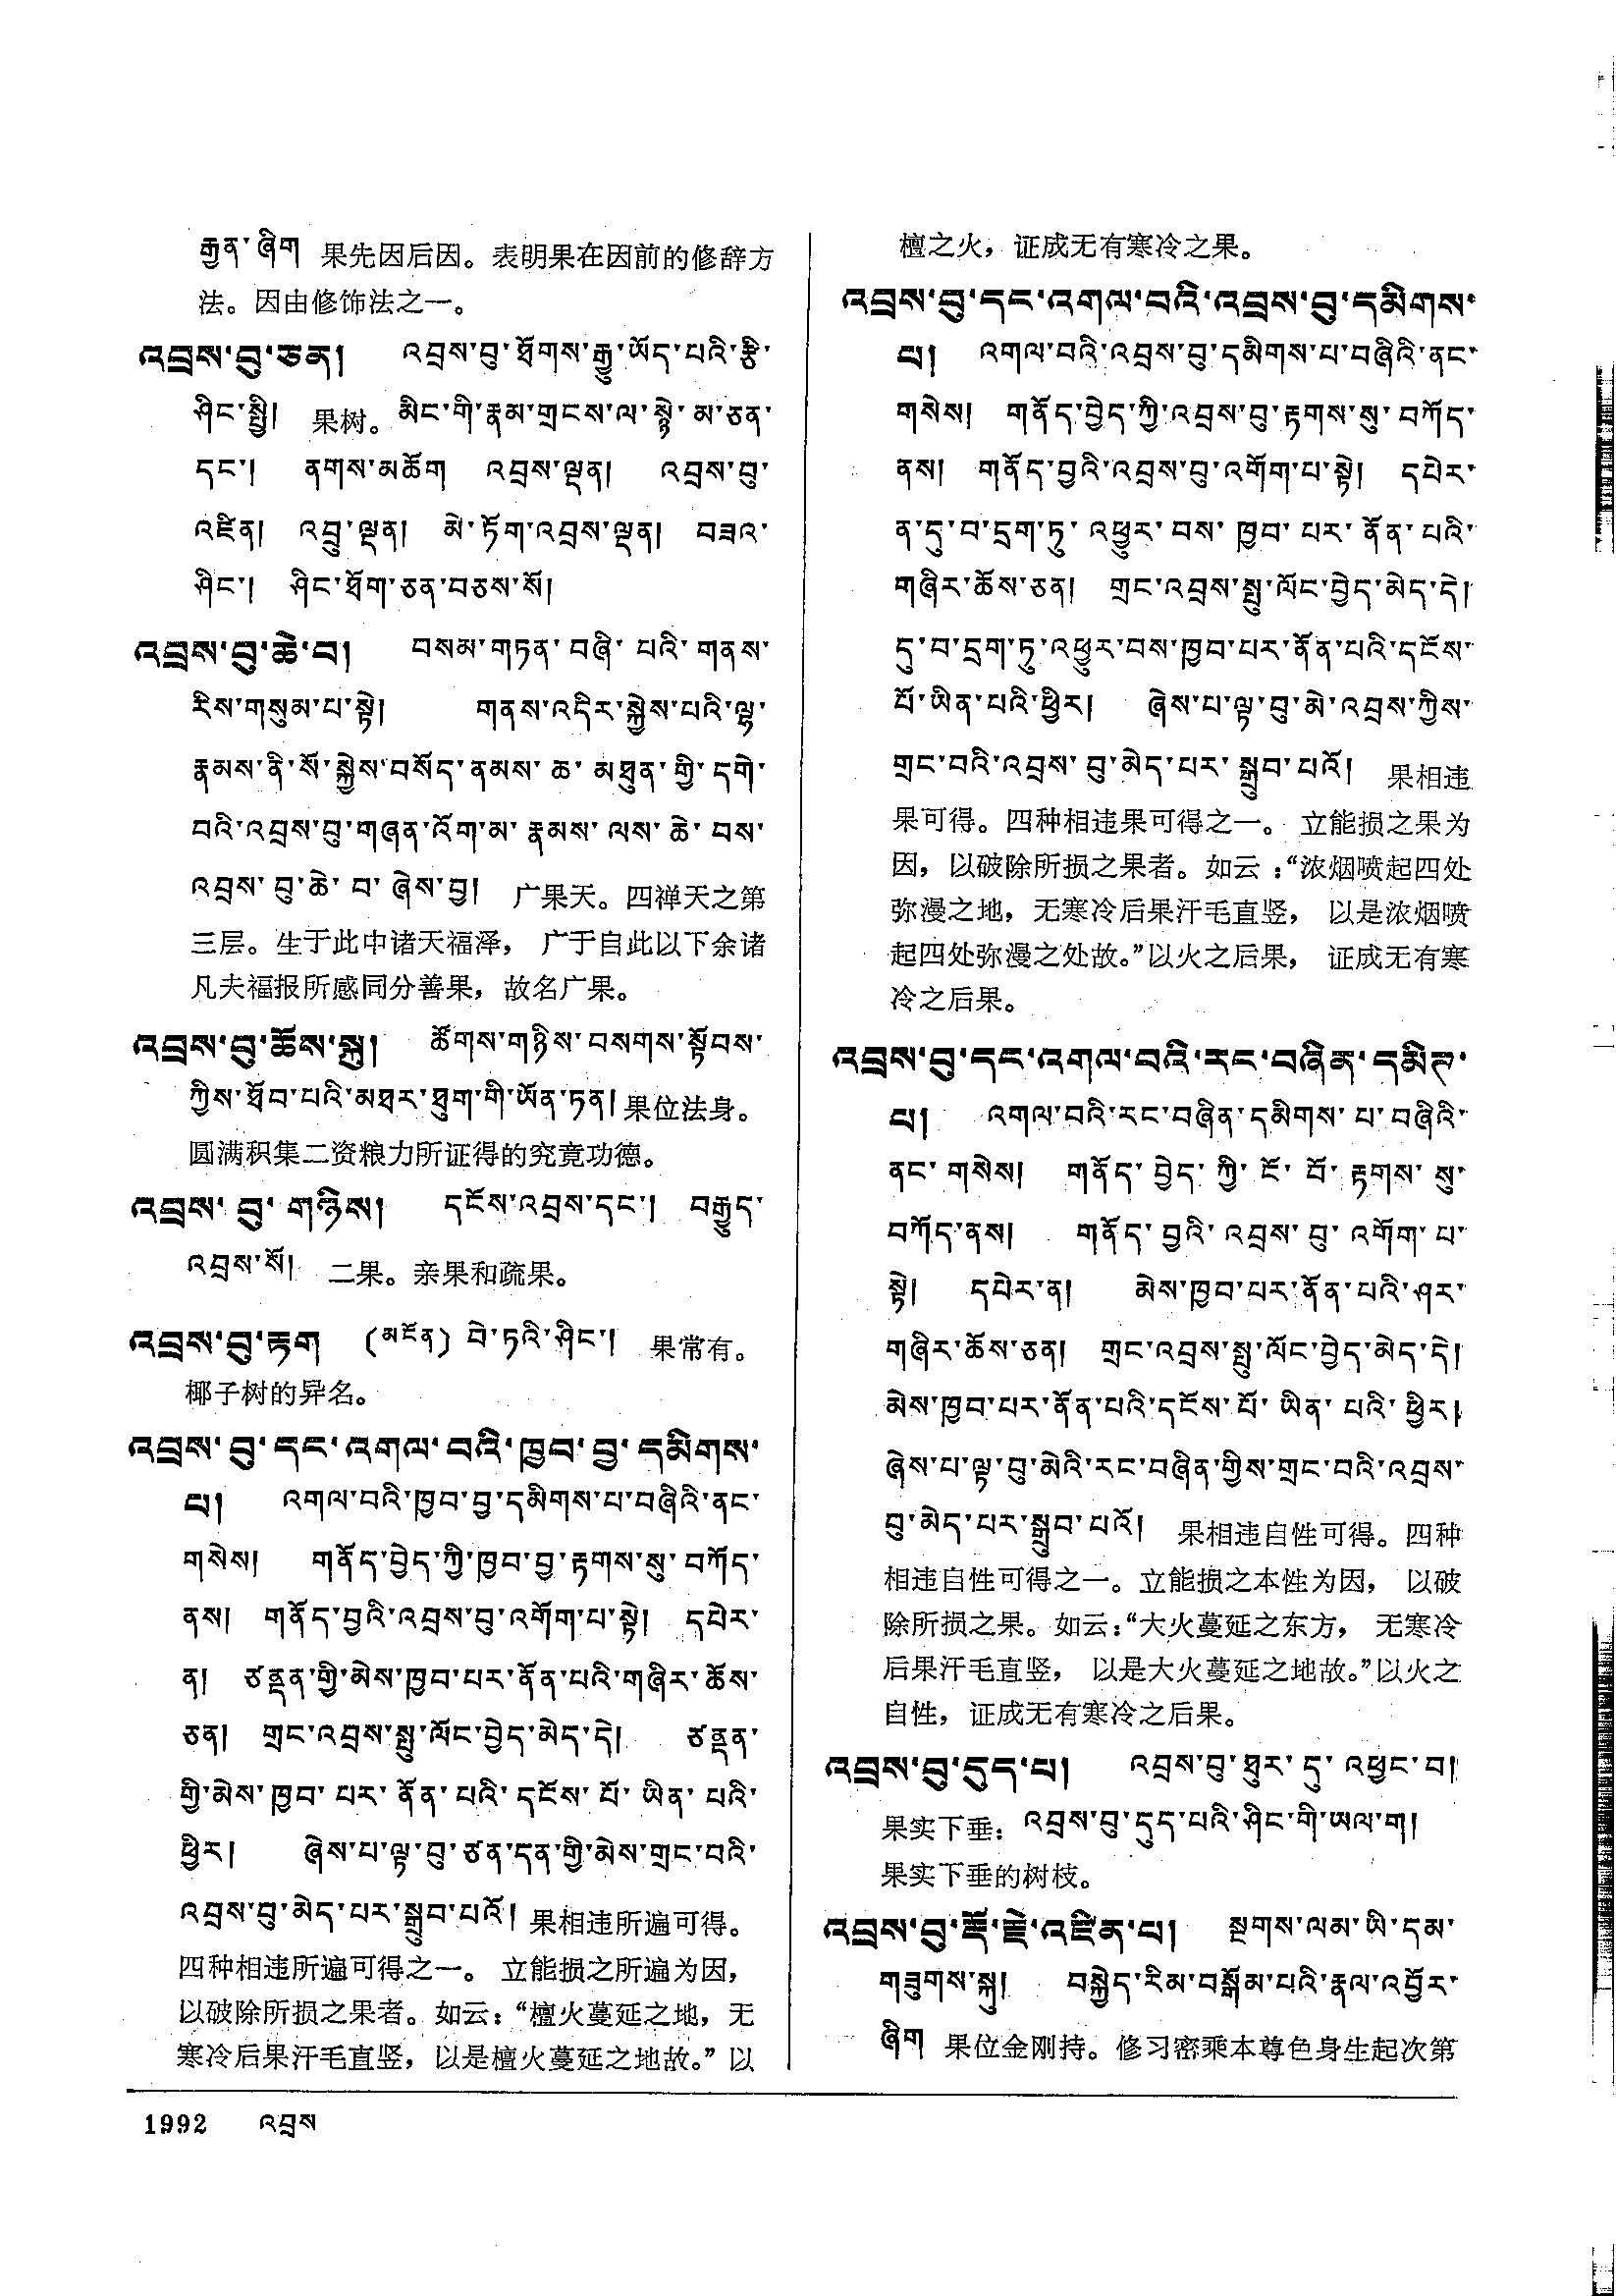 རྒྱན་ཞིག 果先因后因。表明果在因前的修辞方
法。因由修饰法之一。
འབྲས་བུ་ཅན། འབྲས་བུ་ཐོགས་རྒྱུ་ཡོད་པའི་རྩི་
ཤིང་སྤྱི། 果树。མིང་གི་རྣམ་གྲངས་ལ་སྟེ་མ་ཅན་
དང་། ནགས་མཆོག འབྲས་ལྡན། འབྲས་བུ་
འཛིན། འབྲུ་ལྡན། མེ་ཏོག་འབྲས་ལྡན། བཟའ་
ཤིང་། ཤིང་ཐོག་ཅན་བཅས་སོ།
འབྲས་བུ་ཆེ་བ། བསམ་གཏན་བཞི་པའི་གནས་
རིས་གསུམ་པ་སྟེ། གནས་འདིར་སྐྱེས་པའི་ལྷ་
རྣམས་ནི་སོ་སྐྱེས་བསོད་ནམས་ཆ་མཐུན་གྱི་དགེ་
བའི་འབྲས་བུ་གཞན་འོག་མ་རྣམས་ལས་ཆེ་བས་
འབྲས་བུ་ཆེ་བ་ཞེས་བྱ། 广果天。四禅天之第
三层。生于此中诸天福泽，广于自此以下余诸
凡夫福报所感同分善果，故名广果。
འབྲས་བུ་ཆོས་སྐུ། ཚོགས་གཉིས་བསགས་སྟོབས་
ཀྱིས་ཐོབ་པའི་མཐར་ཐུག་གི་ཡོན་ཏན། 果位法身。
圆满积集二资粮力所证得的究竟功德。
འབྲས་བུ་གཉིས། དངོས་འབྲས་དང་། བརྒྱུད་
འབྲས་སོ། 二果。亲果和疏果。
འབྲས་བུ་རྟག (མངོན) བེ་ཏའི་ཤིང་། 果常有。
椰子树的异名。
འབྲས་བུ་དང་འགལ་བའི་ཁྱབ་བྱ་དམིགས་
པ། འགལ་བའི་ཁྱབ་བྱ་དམིགས་པ་བཞིའི་ནང་
གསེས། གནོད་བྱེད་ཀྱི་ཁྱབ་བྱ་རྟགས་སུ་བཀོད་
ནས། གནོད་བྱའི་འབྲས་བུ་འགོག་པ་སྟེ། དཔེར་
ན། ཙནྡན་གྱི་མེས་ཁྱབ་པར་ནོན་པའི་གཞིར་ཆོས་
ཅན། གྲང་འབྲས་སྤུ་ལོང་བྱེད་མེད་དེ། ཙནྡན་
གྱི་མེས་ཁྱབ་པར་ནོན་པའི་དངོས་པོ་ཡིན་པའི་
ཕྱིར། ཞེས་པ་ལྟ་བུ་ཙན་དན་གྱི་མེས་གྲང་བའི་
འབྲས་བུ་མེད་པར་སྒྲུབ་པའོ། 果相违所遍可得。
四种相违所遍可得之一。立能损之所遍为因，
以破除所损之果者。如云：“檀火蔓延之地，无
寒冷后果汗毛直竖，以是檀火蔓延之地故。”以
檀之火，证成无有寒冷之果。
འབྲས་བུ་དང་འགལ་བའི་འབྲས་བུ་དམིགས་
པ། འགལ་བའི་འབྲས་བུ་དམིགས་པ་བཞིའི་ནང་
གསེས། གནོད་བྱེད་ཀྱི་འབྲས་བུ་རྟགས་སུ་བཀོད་
ནས། གནོད་བྱའི་འབྲས་བུ་འགོག་པ་སྟེ། དཔེར་
ན་དུ་བ་དྲག་ཏུ་འཕྱུར་བས་ཁྱབ་པར་ནོན་པའི་
གཞིར་ཆོས་ཅན། གྲང་འབྲས་སྤུ་ལོང་བྱེད་མེད་དེ།
དུ་བ་དྲག་ཏུ་འཕྱུར་བས་ཁྱབ་པར་ནོན་པའི་དངོས་
པོ་ཡིན་པའི་ཕྱིར། ཞེས་པ་ལྟ་བུ་མེ་འབྲས་ཀྱིས་
གྲང་བའི་འབྲས་བུ་མེད་པར་སྒྲུབ་པའོ། 果相违
果可得。四种相违果可得之一。立能损之果为
因，以破除所损之果者。如云：“浓烟喷起四处
弥漫之地，无寒冷后果汗毛直竖，以是浓烟喷
起四处弥漫之处故。”以火之后果，证成无有寒
冷之后果。
འབྲས་བུ་དང་འགལ་བའི་རང་བཞིན་དམིཊ་
པ། འགལ་བའི་རང་བཞིན་དམིགས་པ་བཞིའི་
ནང་གསེས། གནོད་བྱེད་ཀྱི་ངོ་བོ་རྟགས་སུ་
བཀོད་ནས། གནོད་བྱའི་འབྲས་བུ་འགོག་པ་
སྟེ། དཔེར་ན། མེས་ཁྱབ་པར་ནོན་པའི་ཤར་
གཞིར་ཆོས་ཅན། གྲང་འབྲས་སྤུ་ལོང་བྱེད་མེད་དེ།
མེས་ཁྱབ་པར་ནོན་པའི་དངོས་པོ་ཡིན་པའི་ཕྱིར།
ཞེས་པ་ལྟ་བུ་མེའི་རང་བཞིན་གྱིས་གྲང་བའི་འབྲས་
བུ་མེད་པར་སྒྲུབ་པའོ། 果相违自性可得。四种
相违自性可得之一。立能损之本性为因，以破
除所损之果。如云：“大火蔓延之东方，无寒冷
后果汗毛直竖，以是大火蔓延之地故。”以火之
自性，证成无有寒冷之后果。
འབྲས་བུ་དུད་པ། འབྲས་བུ་ཐུར་དུ་འཕྱང་བ།
果实下垂：འབྲས་བུ་དུད་པའི་ཤིང་གི་ཡལ་ག།
果实下垂的树枝。
འབྲས་བུ་རྡོ་རྗེ་འཛིན་པ། སྔགས་ལམ་ཡི་དམ་
གཟུགས་སྐུ། བསྐྱེད་རིམ་བསྒོམ་པའི་རྣལ་འབྱོར་
ཞིག 果位金刚持。修习密乘本尊色身生起次第
1992 འབྲས